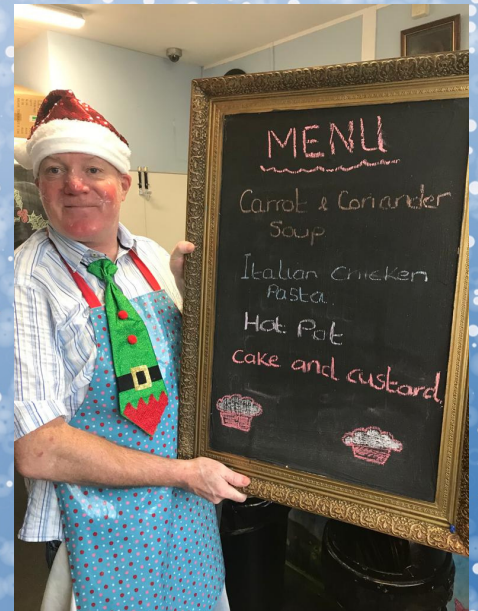 MENU
Carrot & Coriander
Soup
Italian Chicken
Pasta.
Hot Pot
cake and custard.